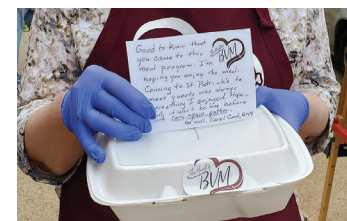 Good to know that
you came to this
meal program. I'm
hoping you enjoy the meal.
Coming to St Patrick's to
meet guests was always
something I enjoyed. Hope
it won't be long before
we can
Carol Cook, BVM
BVM
BVM